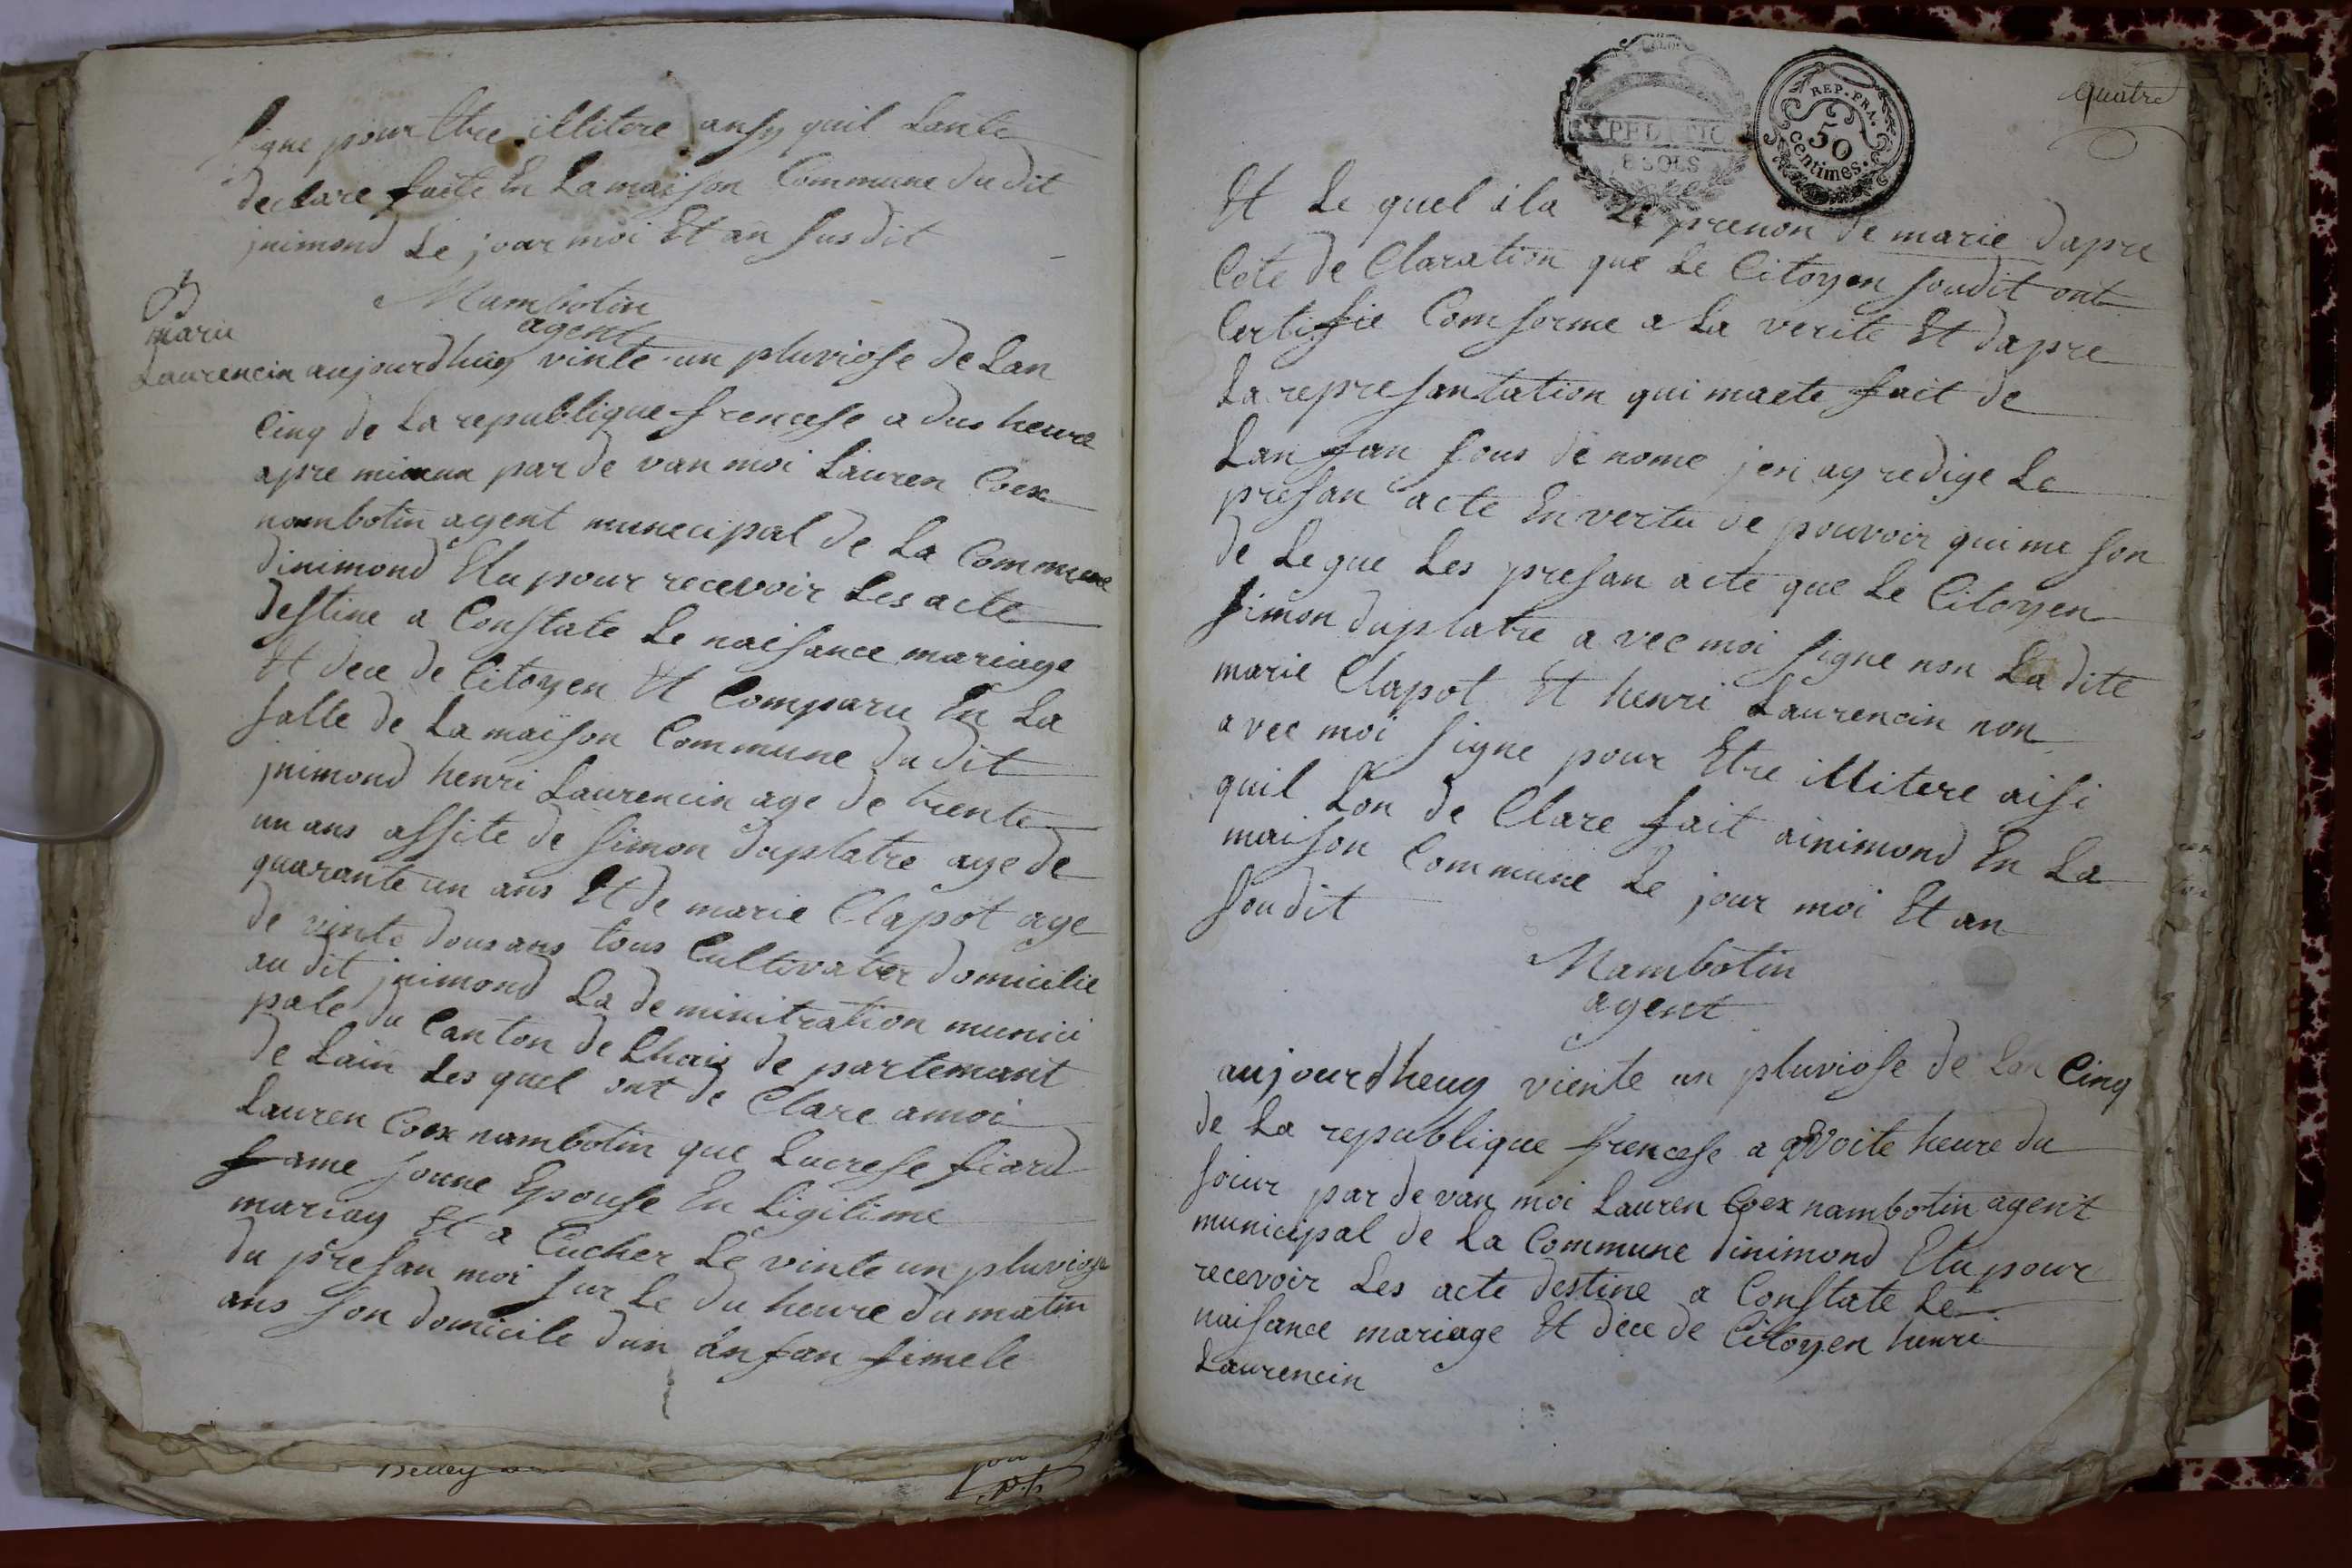 signe pour Etre illitere ansy quil Lonte
declare faite En La maison Commune du dit
jnimond Le jour moi Et an susdit
Mambotin
agent
B
marie
Laurencin
aujourdhuy vinte un pluviose de Lan
Cinq de La republique francese a dus heure
apre par de van moi Lauren Coex
nambotin agent munecipal de La Commune
dinimond Elu pour recevoir Les acte
destine a Constate Le naisance mariage
Et dece de Citoyen Et Comparu En La
salle de La maison Commune du dit
jnimond henri Laurencin age de trente
un ans assite de simon duplatre age de
quarante un ans Et de marie Clapot age
de vinte dous ans tous Cultivater domicilie
au dit jnimond La deminitration munici
pale du Canton de Lhuis de partemant
de Lain Les quel ont de Clare a moi
Lauren Coex nambotin que Lucrese fiard
fame sonne Epouse En Ligitime
mariay Et a Cucher Le vinte un pluviose
du presan moi sur Le du heure du matin
ans son domicile dun Anfan fimele
Belley
quatre
REP. FRA.
50
centimes.
EXPEDITIO
8 SOLS
Et Le quel ila Le prenon de marie dapre
Cete de Claration que Le Citoyen soudit ont
Certifie Comforme a La verite Et dapre
La represantation qui maete fait de
Lanfan sous de nome jen ay redige Le
presan acte En vertu de pouvoir qui me son
de Legue Les presan acte que Le Citoyen
simon duplatre a vec moi signe non La dite
marie Clapot Et henri Laurencin non
avec moi signe pour Etre illitere aisi
quil Lon de Clare fait ainimond En La
maison Commune Le jour moi Et an
soudit
Mambotin
agent
aujourdheuy viente un pluviose de Lan Cinq
de La republique francese a voite heure du
soiur par de van moi Lauren Coex nambotin agent
municipal de La Commune dinimond Elu pour
recevoir Les acte destine a Constate Le
naisance mariage Et dece de Citoyen henri
Laurencin